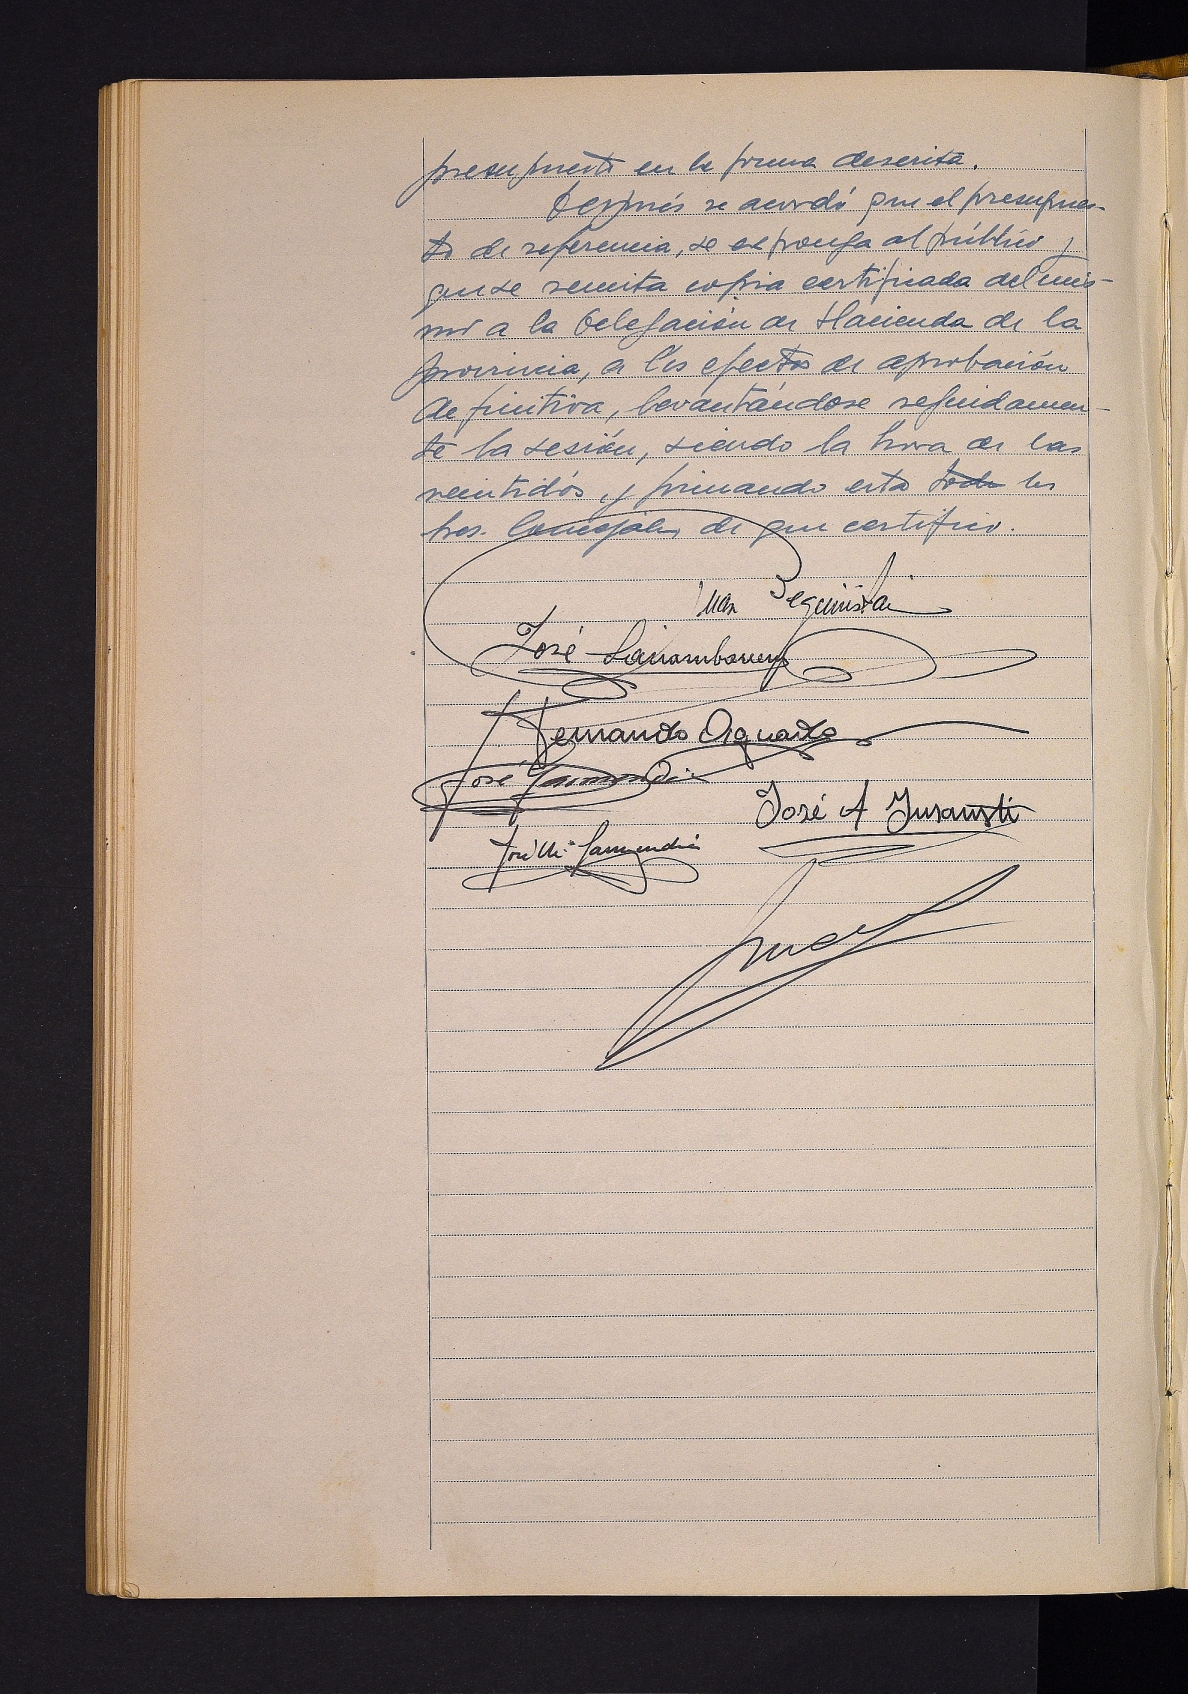 presupuesto en la forma descrita.
Después se acordó que el presupues-
to de referencia, se exponga al público y
que se remita copia certificada del mis-
mo a la Delegación de Hacienda de la
provincia, a los efectos de aprobación
definitiva, levantándose seguidamen-
te la sesión, siendo la hora de las
veintidós, y firmando esta todos los
Sres. Concejales, de que certifico.
Juan Beguiristain
José
Fernando Aguado
José Garmendia
José A Insausti
José Mª Garmendia